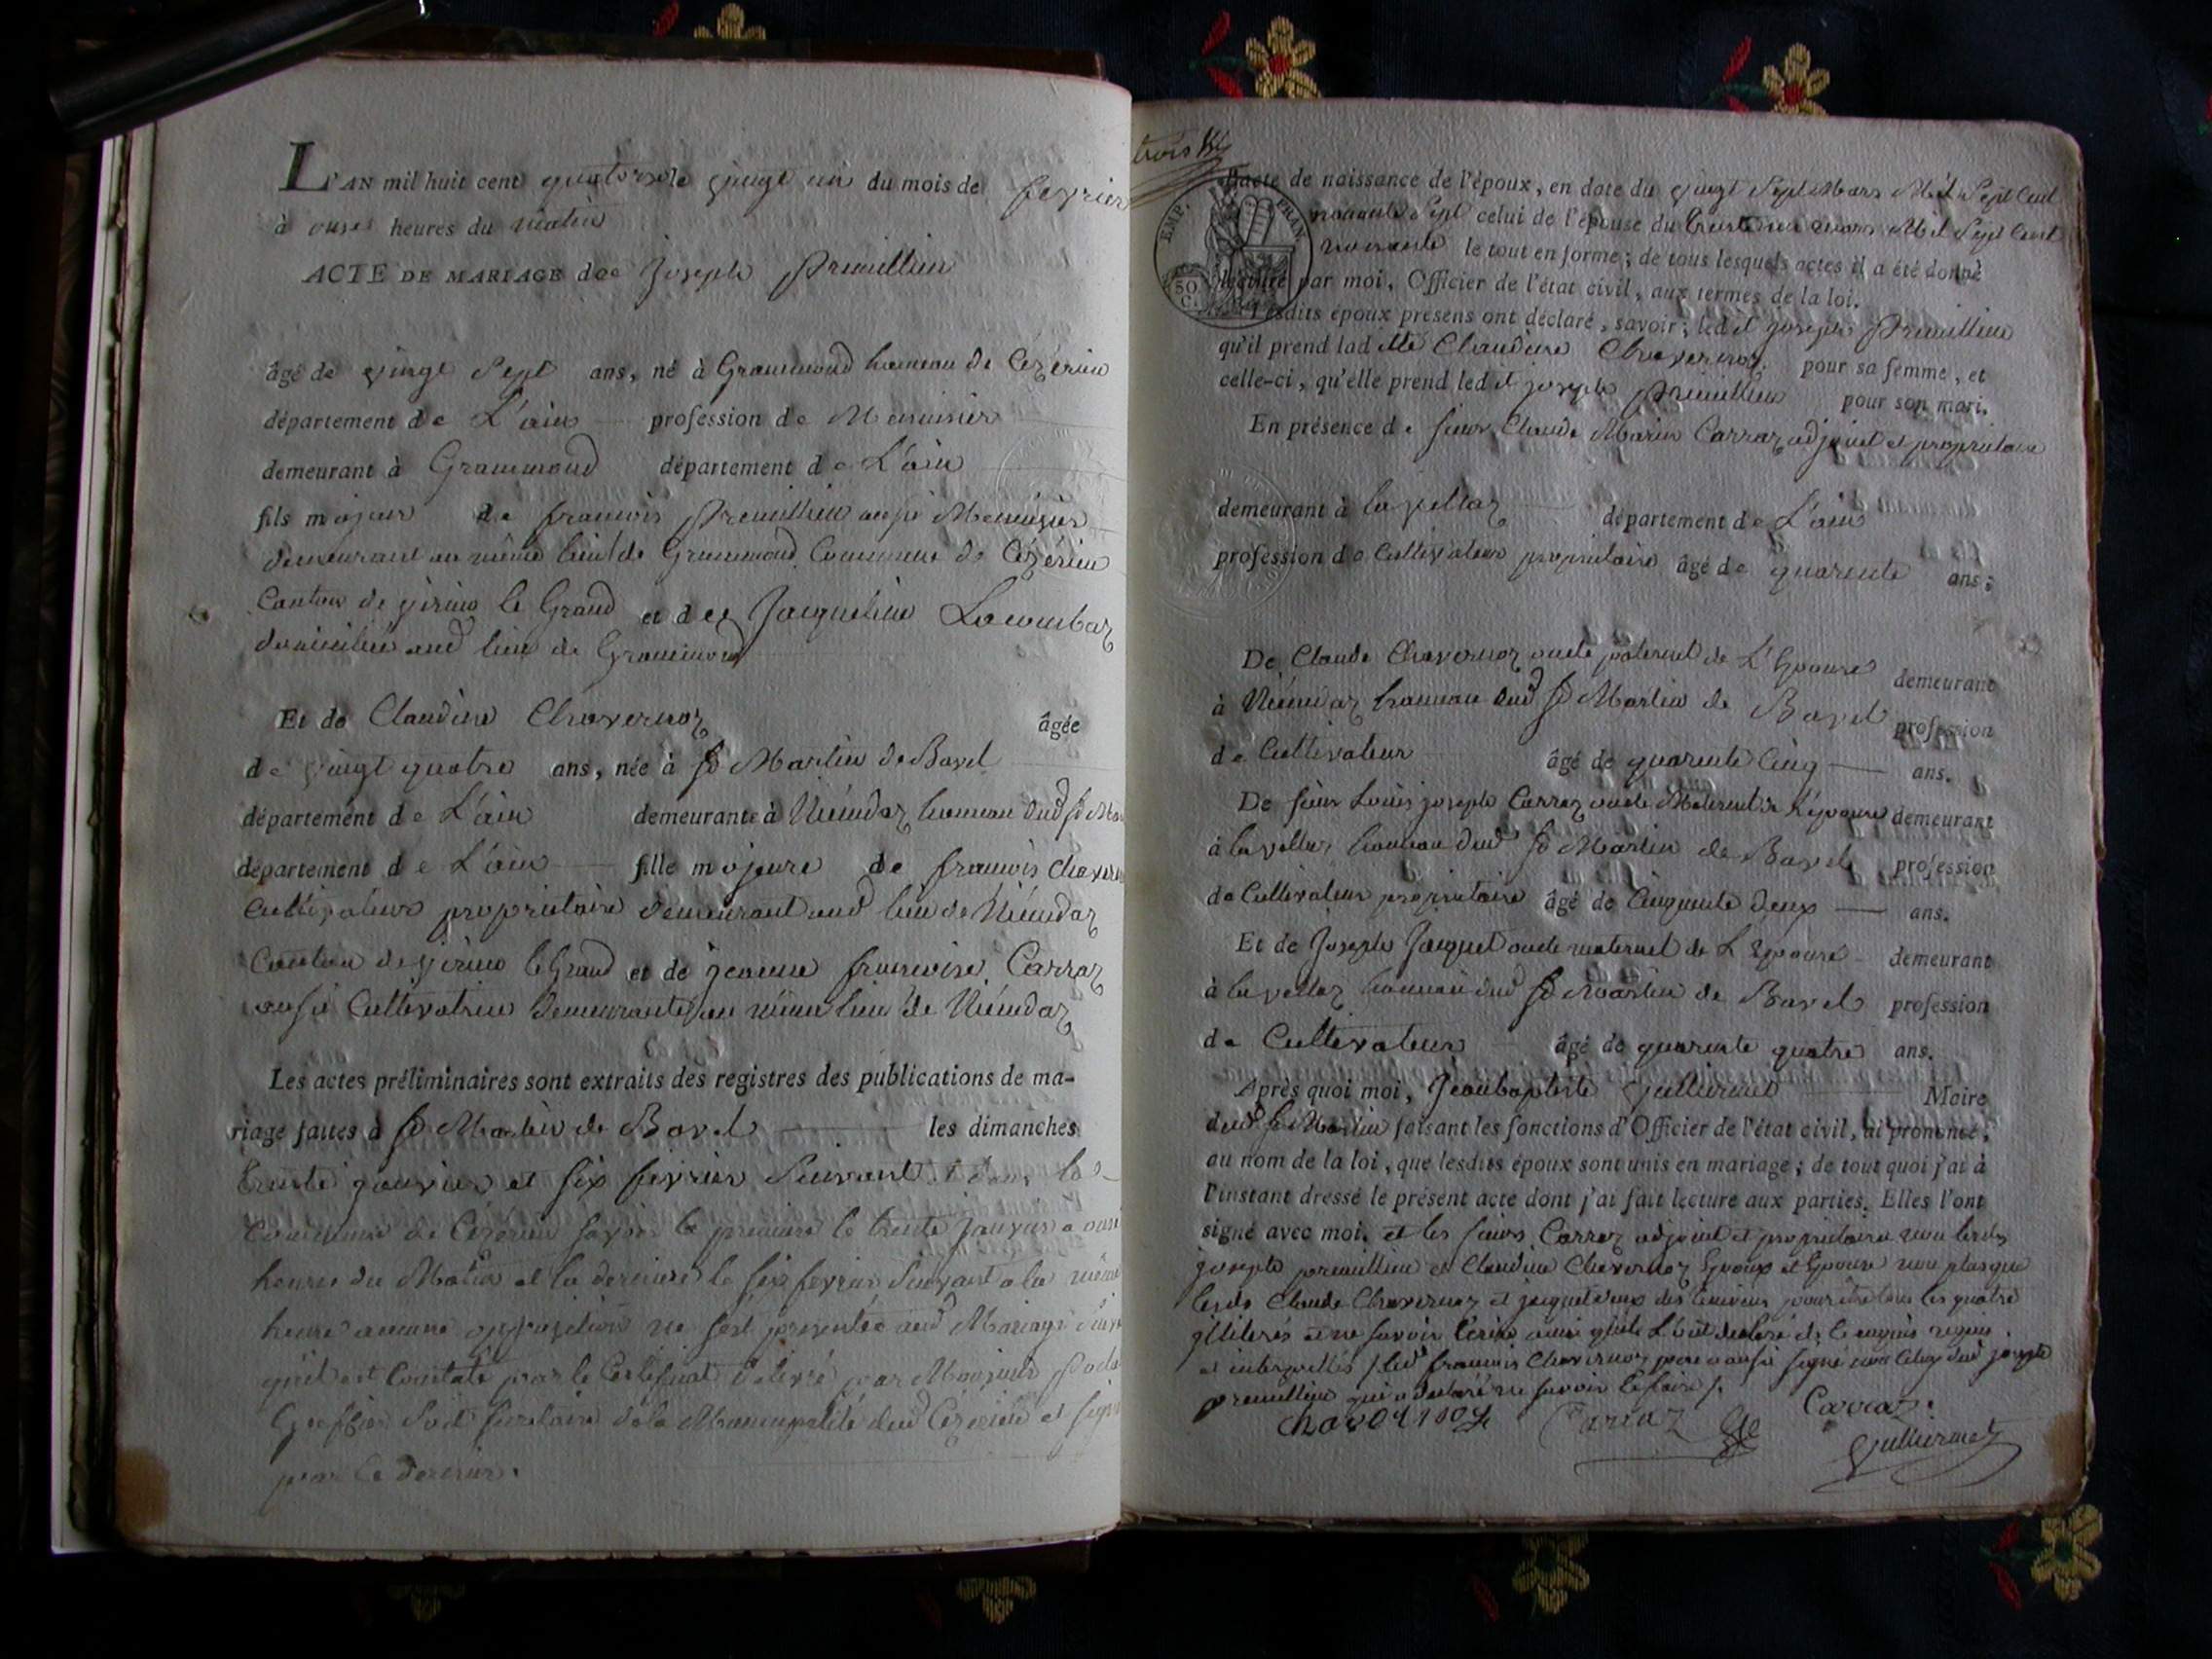 L'AN mil huit cent quatorze le vingt un du mois de fevrier
à onze heures du matin
ACTE DE MARIAGE de Joseph Premillieu
âgé de vingt Sept ans, né à Grammond hameau de Cézérieu
département de L'ain profession de Menuisier
demeurant à Grammond département de L'ain
fils majeur de francois premillieu aussi Menuisier
demeurant au même lieu de Grammond Commune de Cézérieu
Canton de virieu le Grand et de Jacqueline Lacombaz
domiciliée aud lieu de Grammond
Et de Claudine Chavernoz âgée
de vingt quatre ans, née à St Martin de Bavel
département de L'ain demeurante à hameau dud St
département de L'ain fille majeure de francois
Cultivateur propriétaire demeurant aud lieu de
Canton de virieu le Grand et de jeanne francoise Carraz
aussi Cultivatrice demeurante au même lieu de
Les actes préliminaires sont extraits des registres des publications de ma-
riage faites à St Martin de Bavel les dimanches
trente janvier et six fevrier Suivant dans la
commune de Cézérieu savoir la premiere le trente janvier a onze
heures du Matin et la derniere le six fevrier suivant a la même
heure aucune opposition ne s'est présentée aud Mariage
qu'il est Constaté par le Certificat délivré par Monsieur
Greffier soit secretaire de la Municipalité dud Cézérieu et signé
par ce dernier.
trois
EMP. FRAN.
50 C.
L'acte de naissance de l'époux, en date du vingt Sept Mars Mil Sept Cent
celui de l'épouse du trente un mars Mil Sept Cent
nonante le tout en forme; de tous lesquels actes il a été donné
lecture par moi, Officier de l'état civil, aux termes de la loi.
Lesdits époux présens ont déclaré, savoir; led it joseph Premillieu
qu'il prend lad itte Claudine Chavernoz pour sa femme, et
celle-ci, qu'elle prend led it joseph premillieu pour son mari.
En présence de sieur Claude Marin Carraz adjoint et proprietaire
demeurant à lavellaz département de L'ain
profession de Cultivateur propriétaire âgé de quarente ans;
De Claude Chavernoz oncle paternel de L'Epouse demeurant
à hameau dud St Martin de Bavel profession
de Cultivateur âgé de quarente Cinq ans.
De sieur Louis joseph Carraz oncle Maternel de L'épouse demeurant
à lavellaz hameau dud St Martin de Bavel profession
de Cultivateur propriétaire âgé de Cinquante deux ans.
Et de Joseph Jacquet oncle maternel de L'Epouse demeurant
à lavellaz hameau dud St Martin de Bavel profession
de Cultivateur âgé de quarente quatre ans.
Après quoi moi, Jean baptiste Guillermet Maire
dud St Martin faisant les fonctions d'Officier de l'état civil, ai prononcé,
au nom de la loi, que lesdits époux sont unis en mariage; de tout quoi j'ai à
l'instant dressé le présent acte dont j'ai fait lecture aux parties. Elles l'ont
signé avec moi. et les sieurs Carraz adjoint et propriétaire non lesdts
joseph premillieu et Claudine Chavernoz Epoux et Epouse non plus que
lesds Claude Chavernoz et jacquet deux des temoins pour être tous les quatre
illiterés et ne savoir écrire ainsi qu'ils L'ont declaré de ce enquis requis
et interpellés led francois Chavernoz pere a aussi signé non celuy dud joseph
premillieu qui a declaré ne savoir le faire
Chavernoz Carraz Carraz.
Guillermet